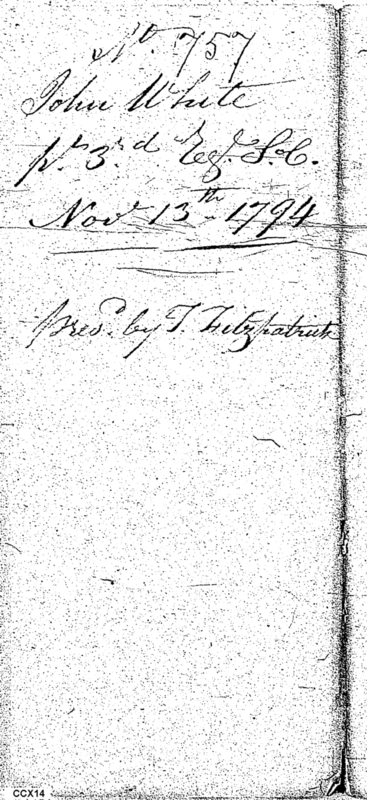 No. 757
John White
pt. 3rd Regt. S.C.
Novr 13th 1794
presd. by T. Fitzpatrick
CCX14